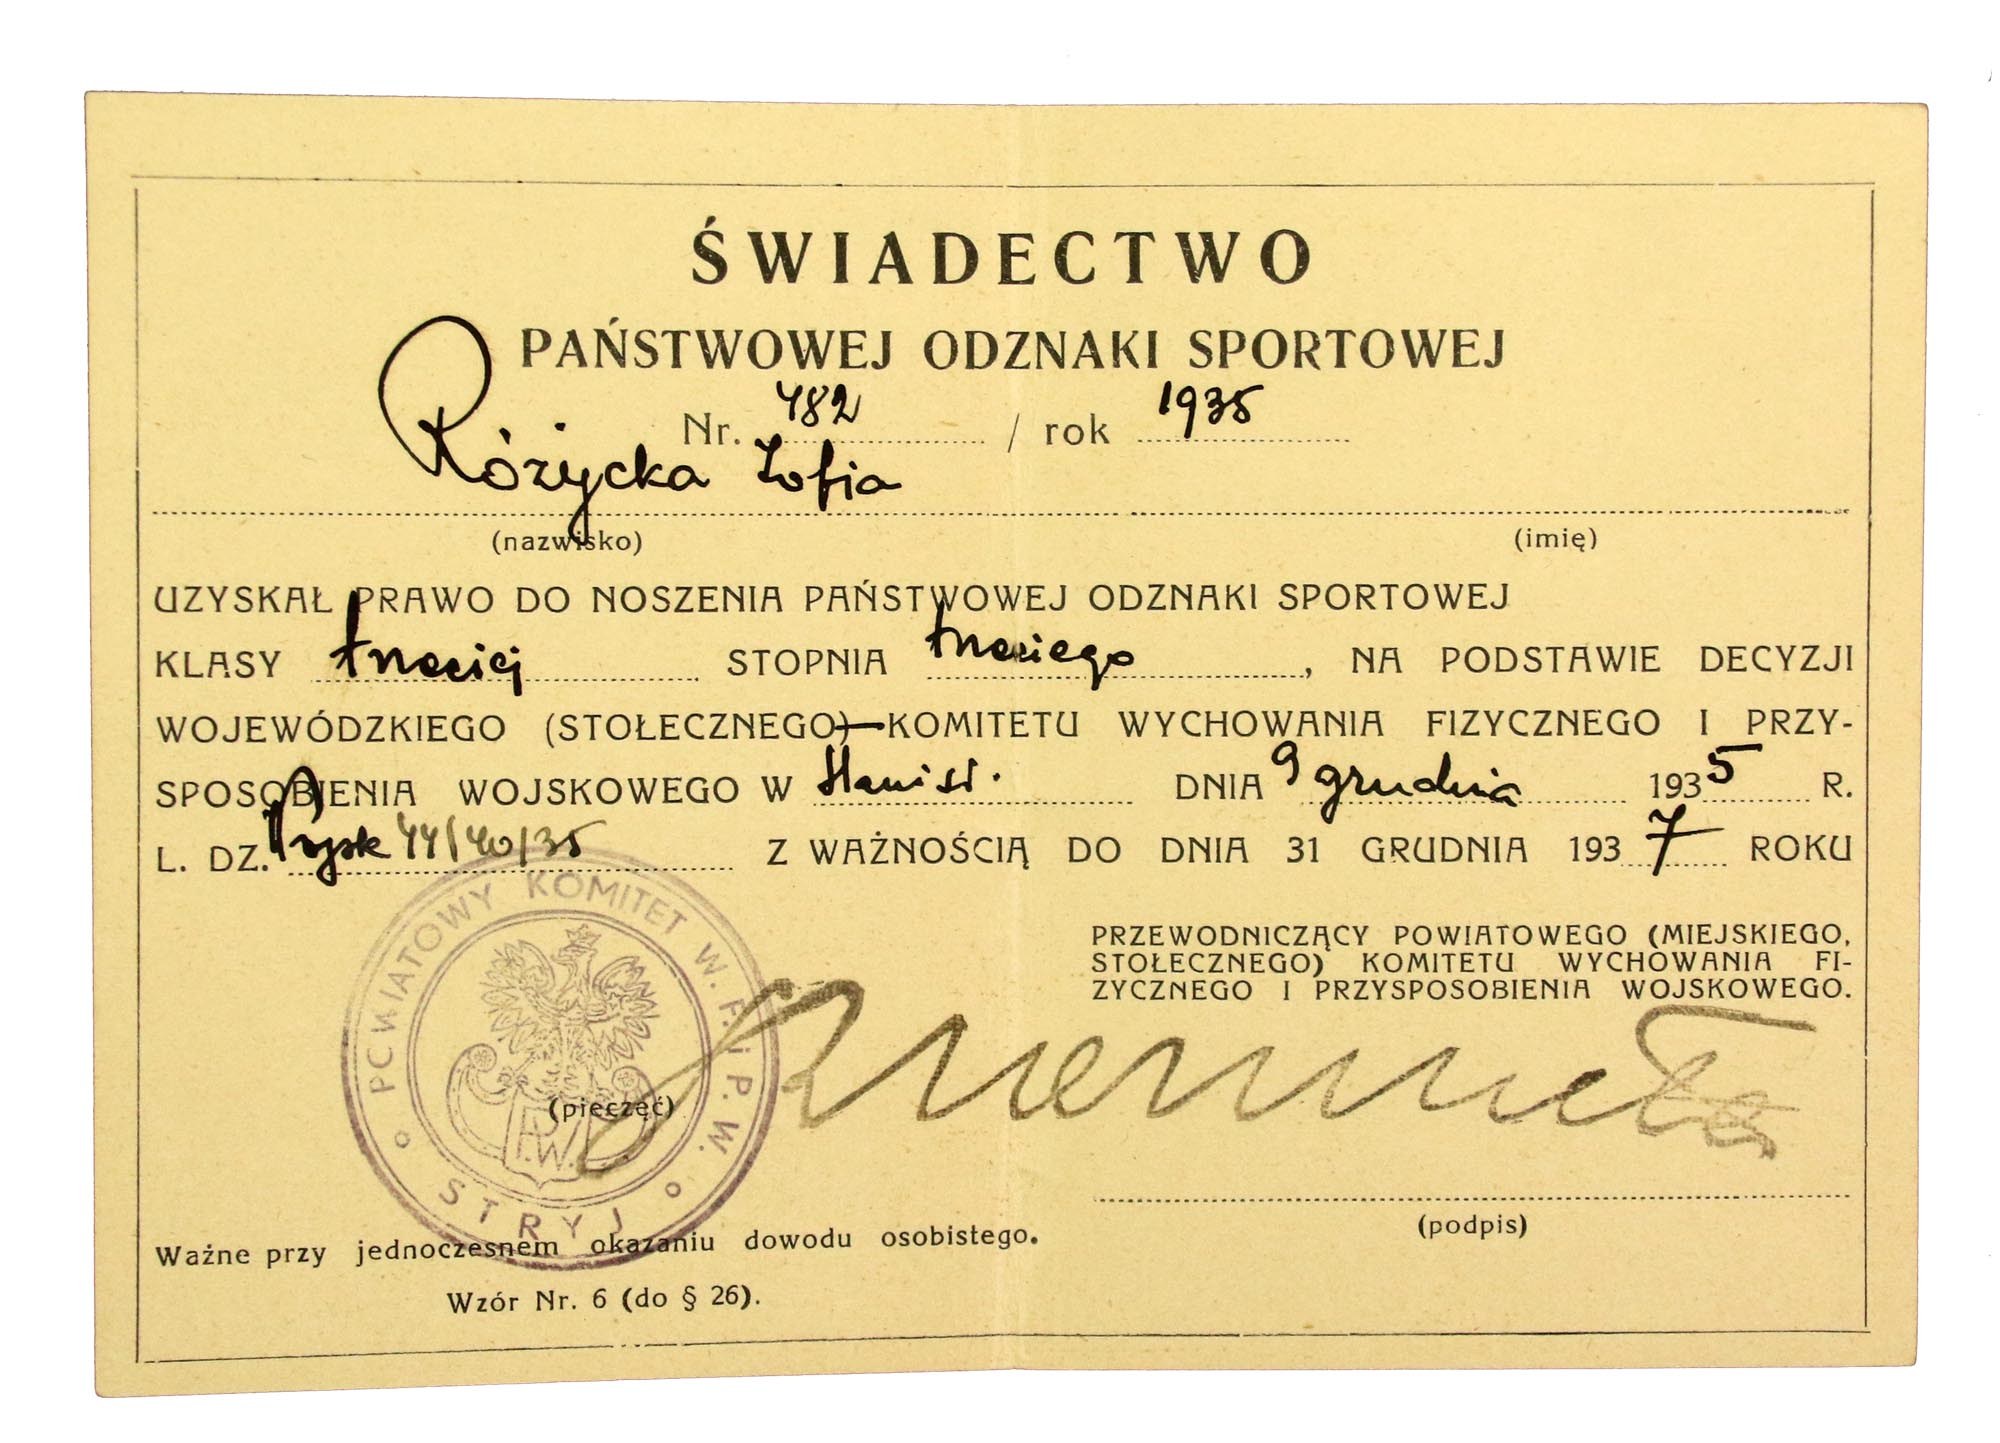 ŚWIADECTWO
PAŃSTWOWEJ ODZNAKI SPORTOWEJ
Nr. 482 / rok 1935
Różycka Zofia
(nazwisko) (imię)
UZYSKAŁ PRAWO DO NOSZENIA PAŃSTWOWEJ ODZNAKI SPORTOWEJ
KLASY trzeciej STOPNIA trzeciego, NA PODSTAWIE DECYZJI
WOJEWÓDZKIEGO (STOŁECZNEGO) KOMITETU WYCHOWANIA FIZYCZNEGO I PRZY-
SPOSOBIENIA WOJSKOWEGO W Stanisł. DNIA 9 grudnia 1935 R.
L. DZ. 44/40/35 Z WAŻNOŚCIĄ DO DNIA 31 GRUDNIA 1937 ROKU
PRZEWODNICZĄCY POWIATOWEGO (MIEJSKIEGO,
STOŁECZNEGO) KOMITETU WYCHOWANIA FI-
ZYCZNEGO I PRZYSPOSOBIENIA WOJSKOWEGO.
POWIATOWY KOMITET W. F. i P. W.
STRYJ
P.W.
(pieczęć)
(podpis)
Ważne przy jednoczesnem okazaniu dowodu osobistego.
Wzór Nr. 6 (do § 26).